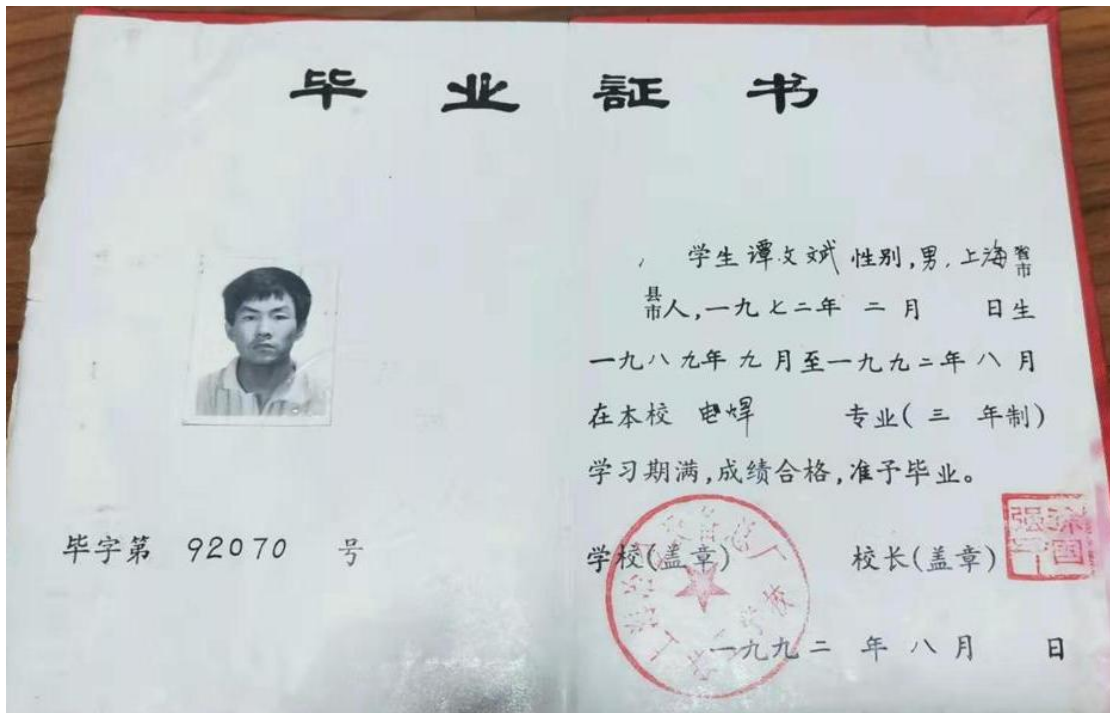 毕业証书
学生谭文斌 性别,男,上海省市
县市人,一九七二年 二月 日生
一九八九年九月至一九九二年八月
在本校 电焊 专业( 三 年制)
学习期满,成绩合格,准予毕业。
毕字第 92070 号
学校(盖章) 校长(盖章)
一九九二 年 八月 日